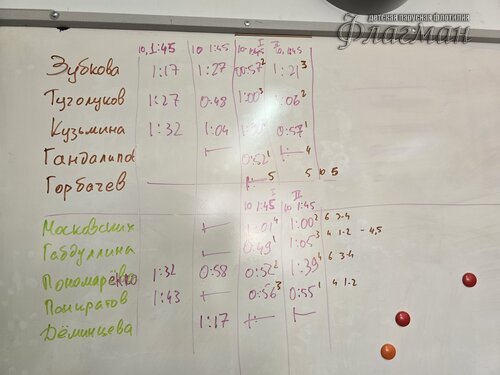 детская парусная флотилия
Флагман
10, 1:45 10 1:45 I 10, 1:45 II 10, 1:45
Зубкова 1:17 1:27 00:57² 1:21³
Туголуков 1:27 0:48 1:00³ 1:06²
Кузьмина 1:32 1:04 0:57¹
Гандалипов 0:52¹ 4
Горбачев 5 5 10 5
I II
10 1:45 10 1:45
Московских 1:01⁴ 1:00² 6 3-4
Габдуллина 0:49¹ 1:05³ 4 1-2 - 4,5
Пономарёв 1:32 0:58 0:52² 1:39⁴ 6 3-4
Понкратов 1:43 0:56³ 0:55¹ 4 1-2
Дёминцева 1:17